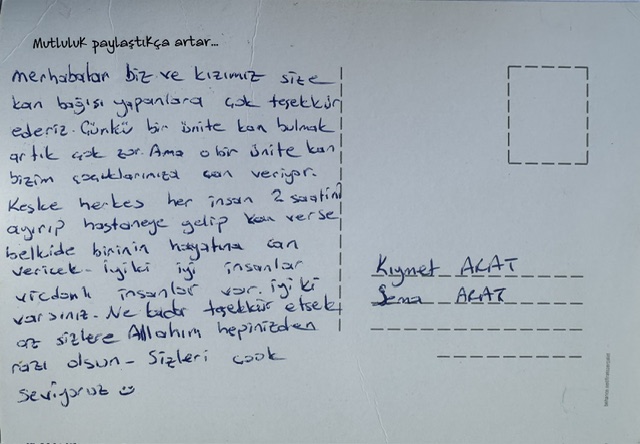 Mutluluk paylaştıkça artar...
merhabalar biz ve kızımız size
kan bağışı yapanlara çok teşekkür
ederiz. Çünkü bir ünite kan bulmak
artık çok zor. Ama o bir ünite kan
bizim çocuklarımıza can veriyor.
Keşke herkes her insan 2 saatini
ayırıp hastaneye gelip kan verse
belkide birinin hayatına can
vericek. iyiki iyi insanlar
vicdanlı insanlar var. iyi ki
varsınız. Ne kadar teşekkür etsek
az sizlere Allahım hepinizden
razı olsun - Sizleri çook
seviyoruz ☺
Kıymet AKAT
Sema AKAT